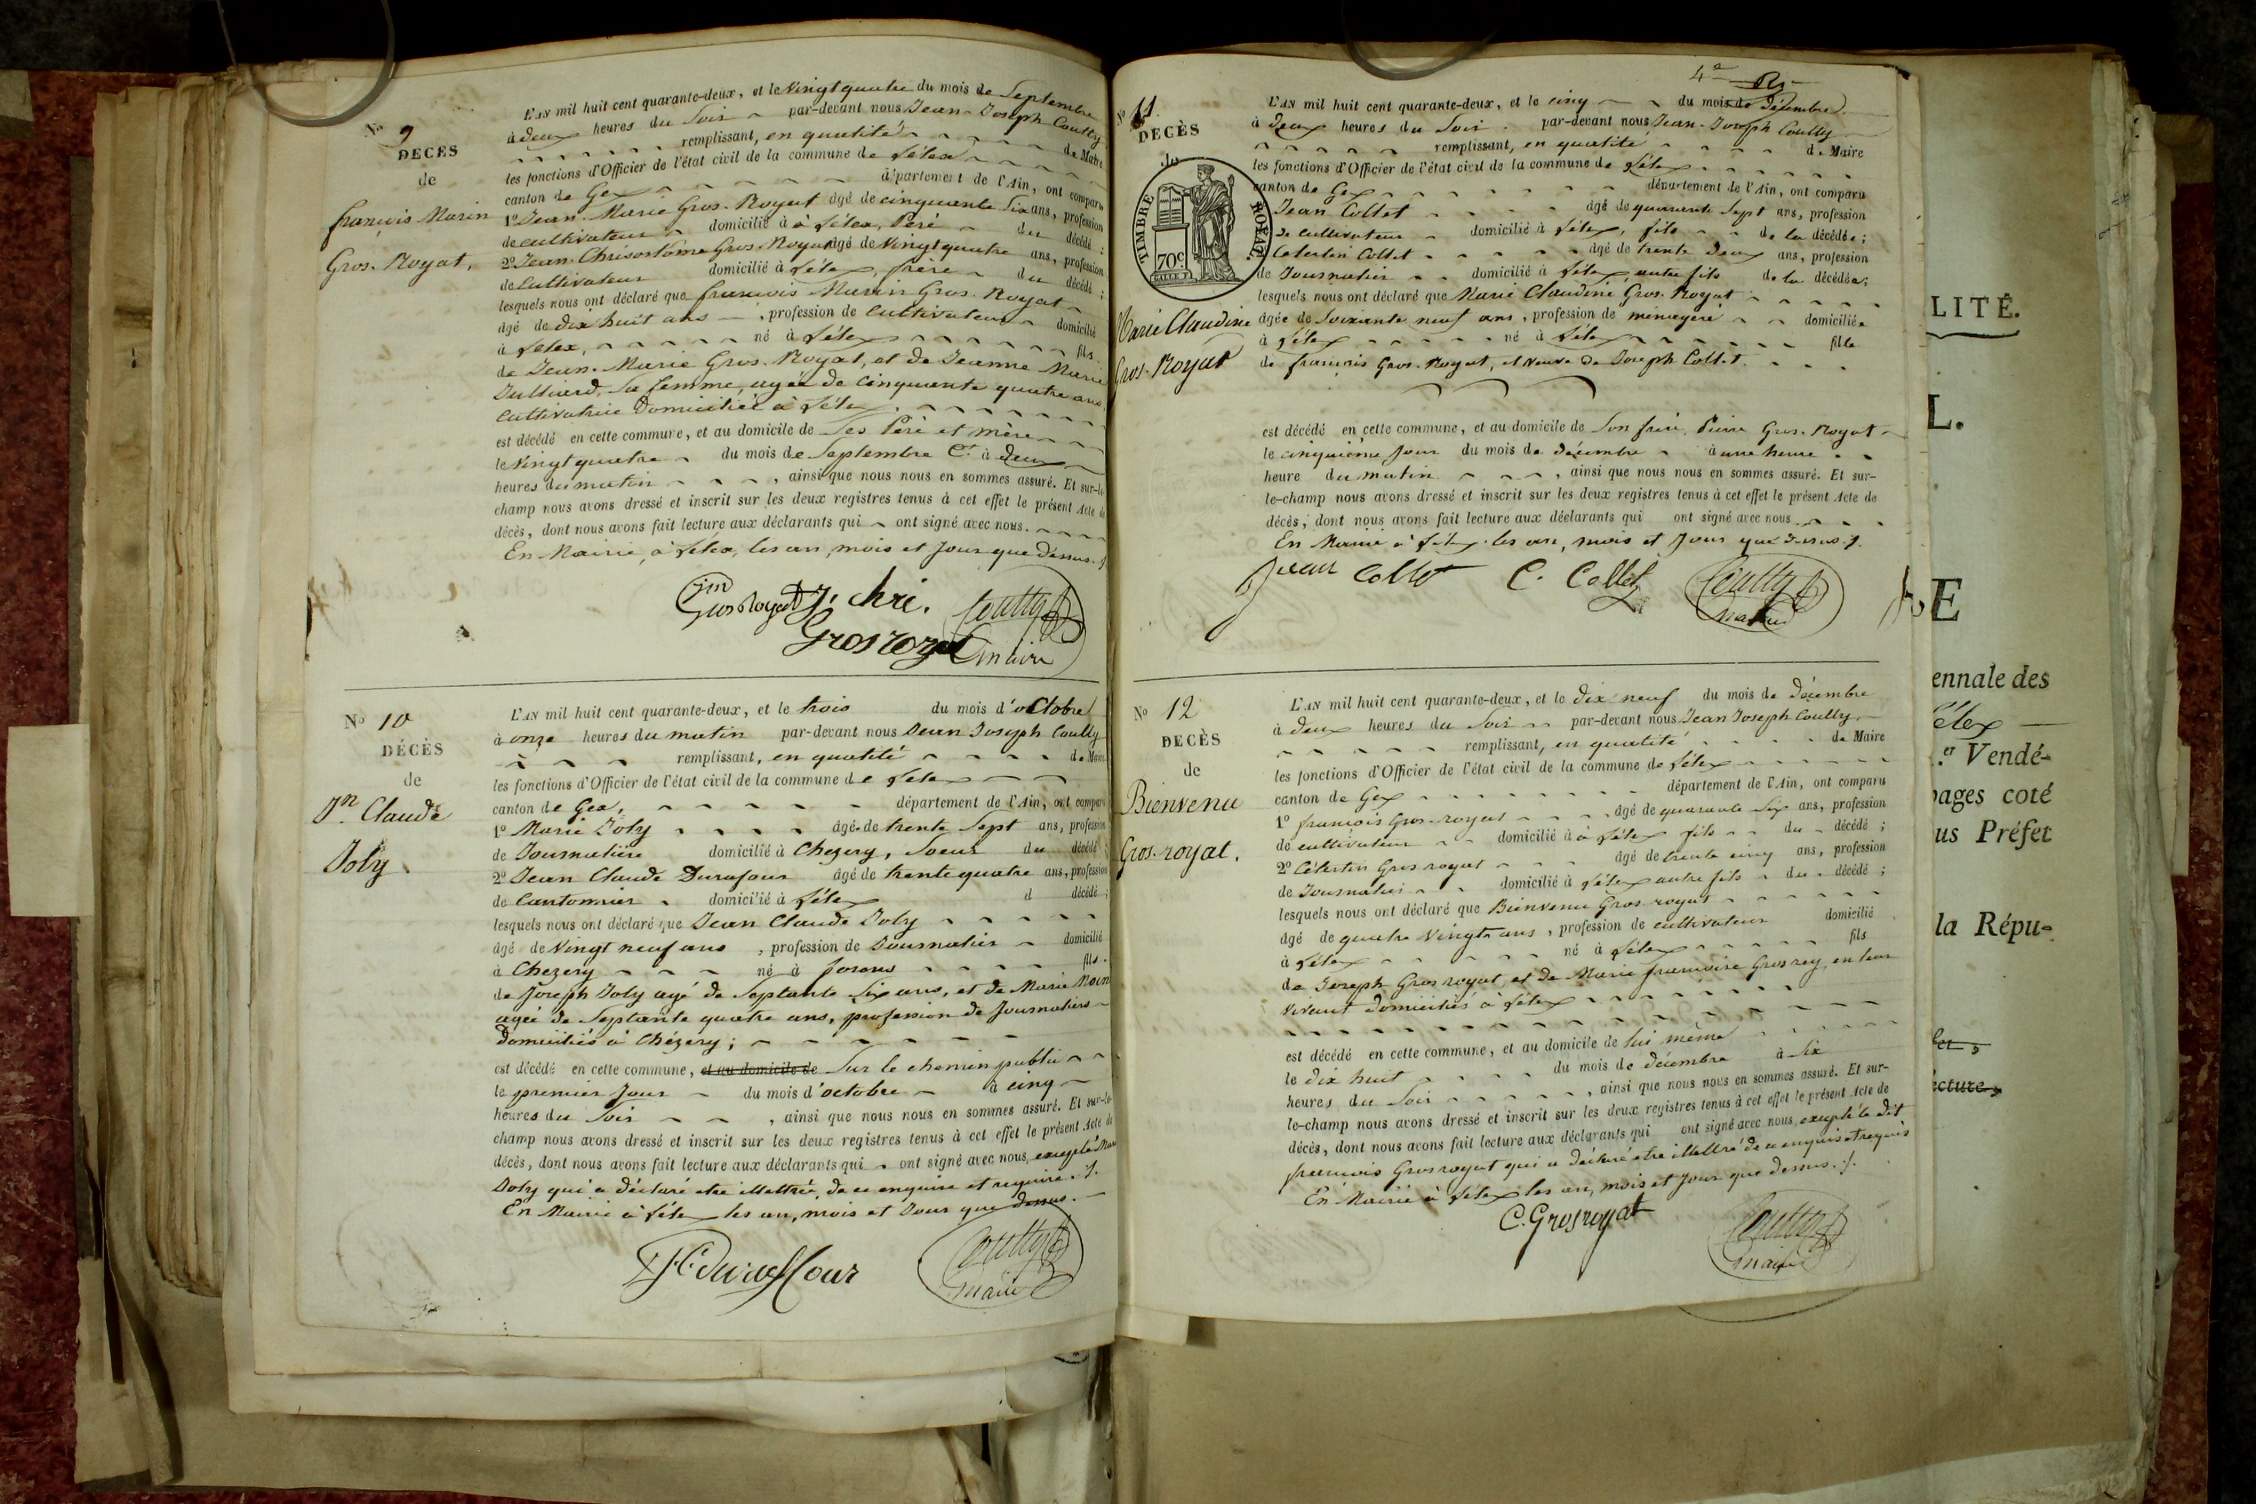 N.º 9
DECÈS
de
francois Marin
Gros-Royat.
L'AN mil huit cent quarante-deux, et le Vingt quatre du mois de Septembre
à deux heures du Soir par-devant nous Jean-Joseph Coutty
remplissant, en qualité de Maire
les fonctions d'Officier de l'état civil de la commune de Lélex
canton de Gex département de l'Ain, ont comparu
1º Jean-Marie Gros-Royat âgé de cinquante Six ans, profession
de cultivateur domicilié à à Lélex, Père du décédé ;
2º Jean-Chrisostôme Gros-Royat âgé de Vingt quatre ans, profession
de Cultivateur domicilié à Lélex, frère du décédé ;
lesquels nous ont déclaré que francois Marin Gros-Royat
âgé de dix huit ans , profession de Cultivateur domicilié
à Lélex, né à Lélex fils
de Jean-Marie Gros-Royat, et de Jeanne Marie
Julliard, Sa femme, agée de cinquante quatre ans,
cultivatrice Domiciliée à Lélex.
est décédé en cette commune, et au domicile de Ses Père et mère
le Vingt quatre du mois de Septembre Ct. à deux
heures du matin , ainsi que nous nous en sommes assuré. Et sur-le-
champ nous avons dressé et inscrit sur les deux registres tenus à cet effet le présent Acte de
décès, dont nous avons fait lecture aux déclarants qui ont signé avec nous.
En Mairie, à Lélex, les an, mois et Jour que Dessus ./.
jm
Gros Royat J. chri.
Grosroyat
Coutty
maire
Nº 10
DÉCÈS
de
Jn. Claude
Joly
L'AN mil huit cent quarante-deux, et le trois du mois d'octobre
à onze heures du matin par-devant nous Jean Joseph Coutty
remplissant, en qualité de Maire
les fonctions d'Officier de l'état civil de la commune de Lélex
canton de Gex, département de l'Ain, ont comparu
1º Marie Joly âgé de trente Sept ans, profession
de Journalière domicilié à Chezery, Soeur du décédé ;
2º Jean Claude Durafour âgé de trente quatre ans, profession
de Cantonnier domicilié à Lélex d décédé ;
lesquels nous ont déclaré que Jean Claude Joly
âgé de Vingt neuf ans , profession de Journalier domicilié
à Chezery né à forens fils
de Joseph Joly agé de Septante Six ans, et de Marie
agée de Septante quatre ans, profession de Journaliers
Domiciliés à Chézery ;
est décédé en cette commune, et au domicile de Sur le chemin public
le premier Jour du mois d'octobre à cinq
heures du Soir , ainsi que nous nous en sommes assuré. Et sur-le-
champ nous avons dressé et inscrit sur les deux registres tenus à cet effet le présent Acte de
décès, dont nous avons fait lecture aux déclarants qui ont signé avec nous, excepté Marie
Joly qui a déclaré etre illettrée, de ce enquise et requise ./.
En Mairie à Lélex les an, mois et Jour que dessus.
J.C. duraffour
Coutty
maire
4e
Nº 11
DECÈS
de
TIMBRE ROYAL
70 C
Marie Claudine
Gros-Royat
L'AN mil huit cent quarante-deux, et le cinq du mois de Décembre
à Deux heures du Soir par-devant nous Jean-Joseph Coutty
remplissant, en qualité de Maire
les fonctions d'Officier de l'état civil de la commune de Lélex
canton de Gex département de l'Ain, ont comparu
Jean Collet âgé de quarante Sept ans, profession
de cultivateur domicilié à Lélex, fils de la décédée ;
Célestin Collet âgé de trente Deux ans, profession
de Journalier domicilié à Lélex autre fils de la décédée ;
lesquels nous ont déclaré que Marie Claudine Gros-Royat
âgée de Soixante neuf ans , profession de ménagère domiciliée
à Lélex né à Lélex fille
de francois Gros-Royat, et Veuve de Joseph Collet.
est décédé en cette commune, et au domicile de Son frère, Pierre Gros-Royat
le cinquième Jour du mois de Décembre à une heure
heure du matin , ainsi que nous nous en sommes assuré. Et sur-
le-champ nous avons dressé et inscrit sur les deux registres tenus à cet effet le présent Acte de
décès, dont nous avons fait lecture aux déclarants qui ont signé avec nous
En Mairie à Lélex, les an, mois et Jour que dessus ./.
jean Collet C. Collet
Coutty
maire
Nº 12
DECÈS
de
Bienvenu
Gros-royat.
L'AN mil huit cent quarante-deux, et le Dix neuf du mois de Décembre
à deux heures du Soir par-devant nous Jean Joseph Coutty
remplissant, en qualité de Maire
les fonctions d'Officier de l'état civil de la commune de Lélex
canton de Gex département de l'Ain, ont comparu
1º francois Gros-royat âgé de quarante Six ans, profession
de cultivateur domicilié à à Lélex fils du décédé ;
2º Célestin Gros royat âgé de trente cinq ans, profession
de Journalier domicilié à Lélex autre fils du décédé ;
lesquels nous ont déclaré que Bienvenu Gros royat
âgé de quatre Vingts ans , profession de cultivateur domicilié
à Lélex né à Lélex fils
de Joseph Gros royat et de Marie francoise Grosrey, en leur
Vivant domiciliés à Lélex
est décédé en cette commune, et au domicile de lui même
le dix huit du mois de décembre à Six
heures du Soir , ainsi que nous nous en sommes assuré. Et sur-
le-champ nous avons dressé et inscrit sur les deux registres tenus à cet effet le présent Acte de
décès, dont nous avons fait lecture aux déclarants qui ont signé avec nous, excepté le dit
francois Grosroyat qui a déclaré etre illettré de ce enquis et requis
En Mairie à Lélex les an, mois et Jour que dessus ./.
C. Grosroyat
Coutty
maire
LITÉ.
L.
E
ennale des
élex
er Vendé-
pages coté
us Préfet
la Répu-
ecture,